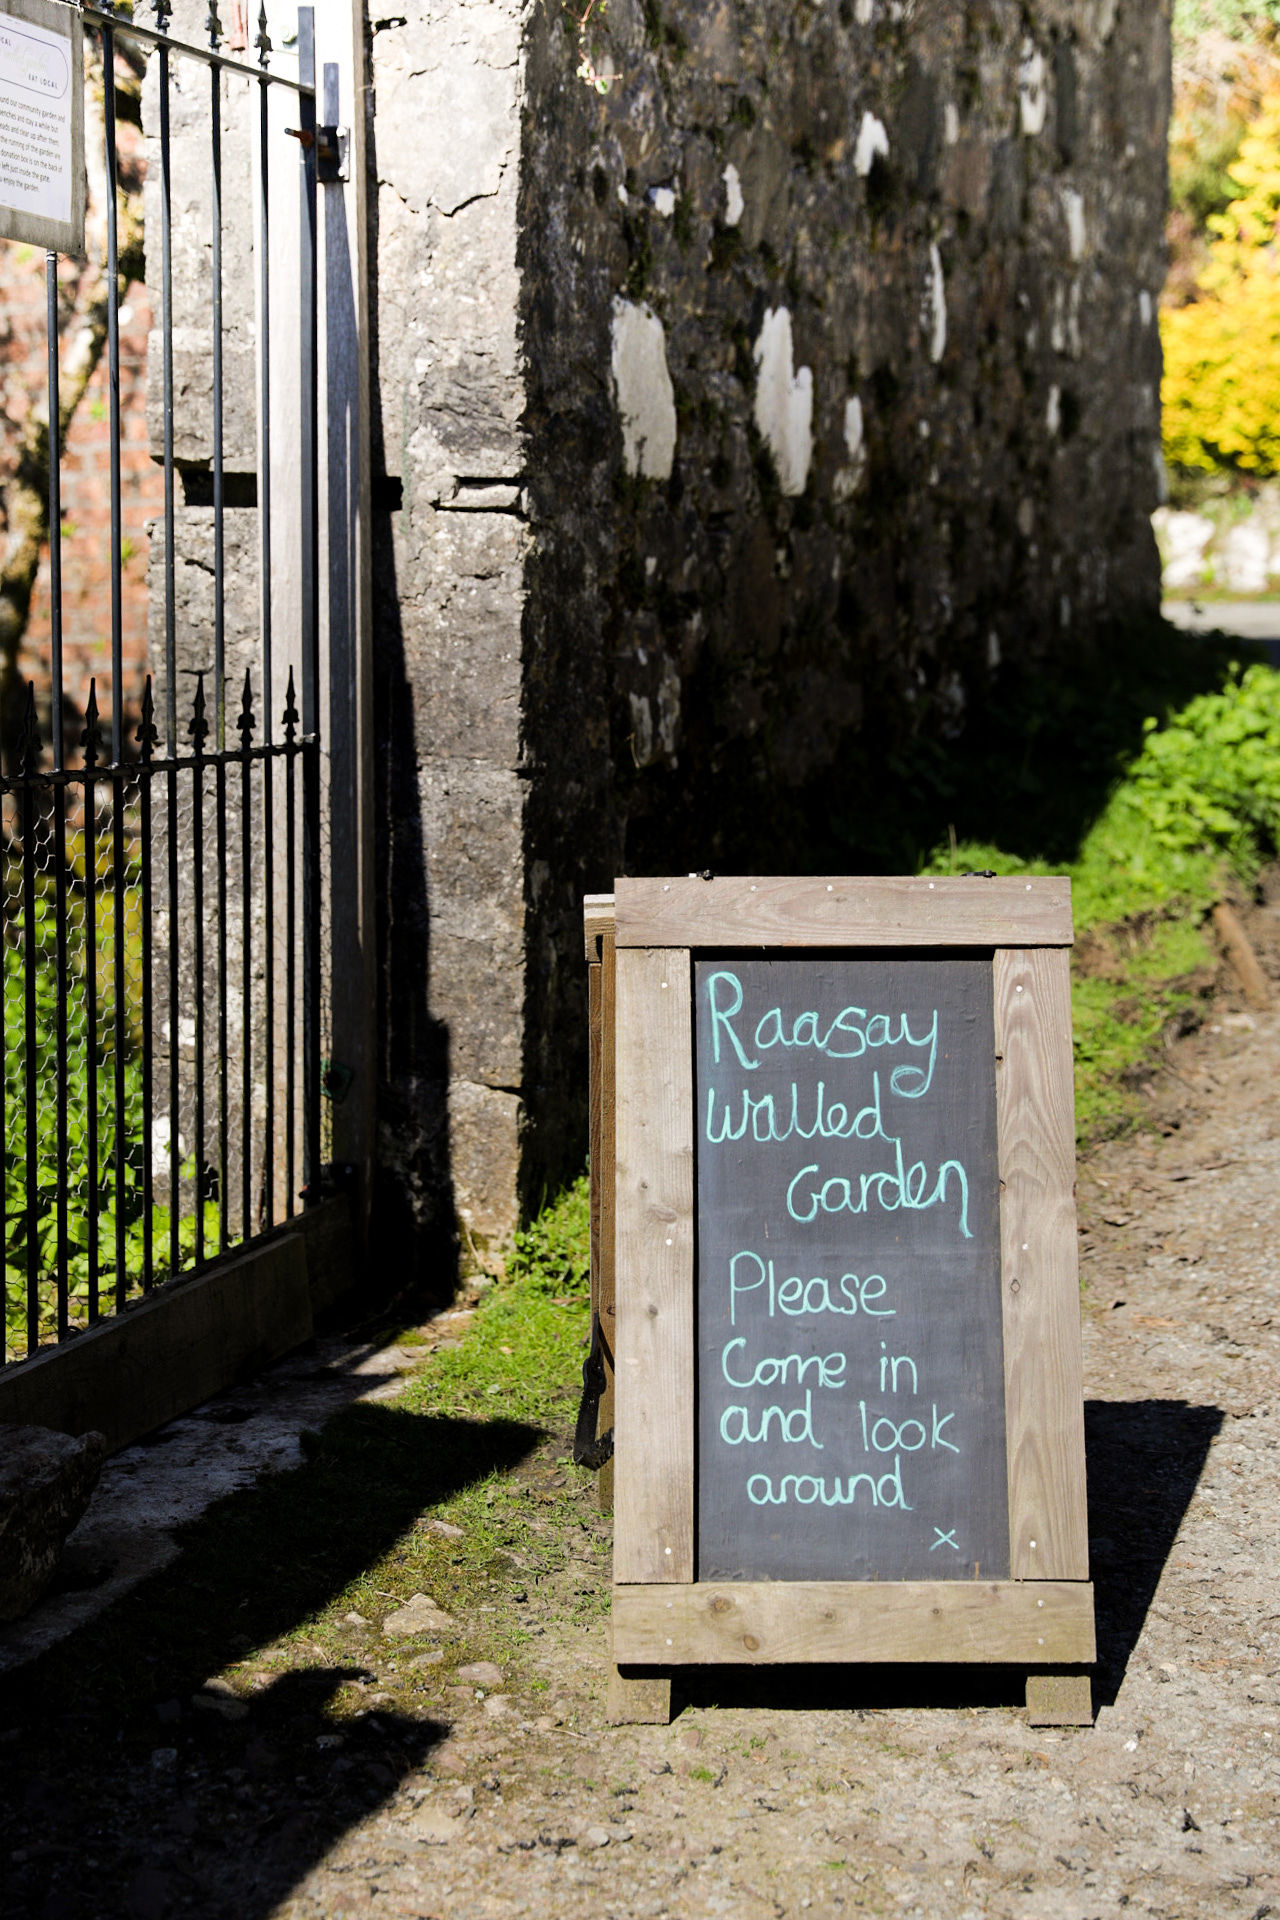 CAL
EAT LOCAL
und our community garden and
benches and stay a while but
eads and clear up after them.
the running of the garden are
donation box is on the back of
left just inside the gate.
u enjoy the garden.
Raasay
Walled
Garden
Please
Come in
and look
around
x